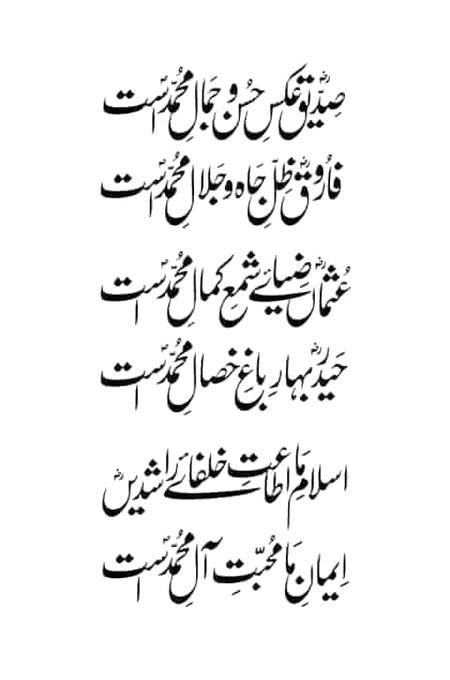 صِدّیقؓ عکسِ حُسن و جمالِ محمدؐ است
فاروقؓ ظِلِّ جاہ و جلالِ محمدؐ است
عُثمانؓ ضیائے شمعِ کمالِ محمدؐ است
حیدرؓ بہارِ باغِ خصالِ محمدؐ است
اسلامِ ما اطاعتِ خلفائے راشدینؓ
ایمانِ ما مُحبّتِ آلِ محمدؐ است